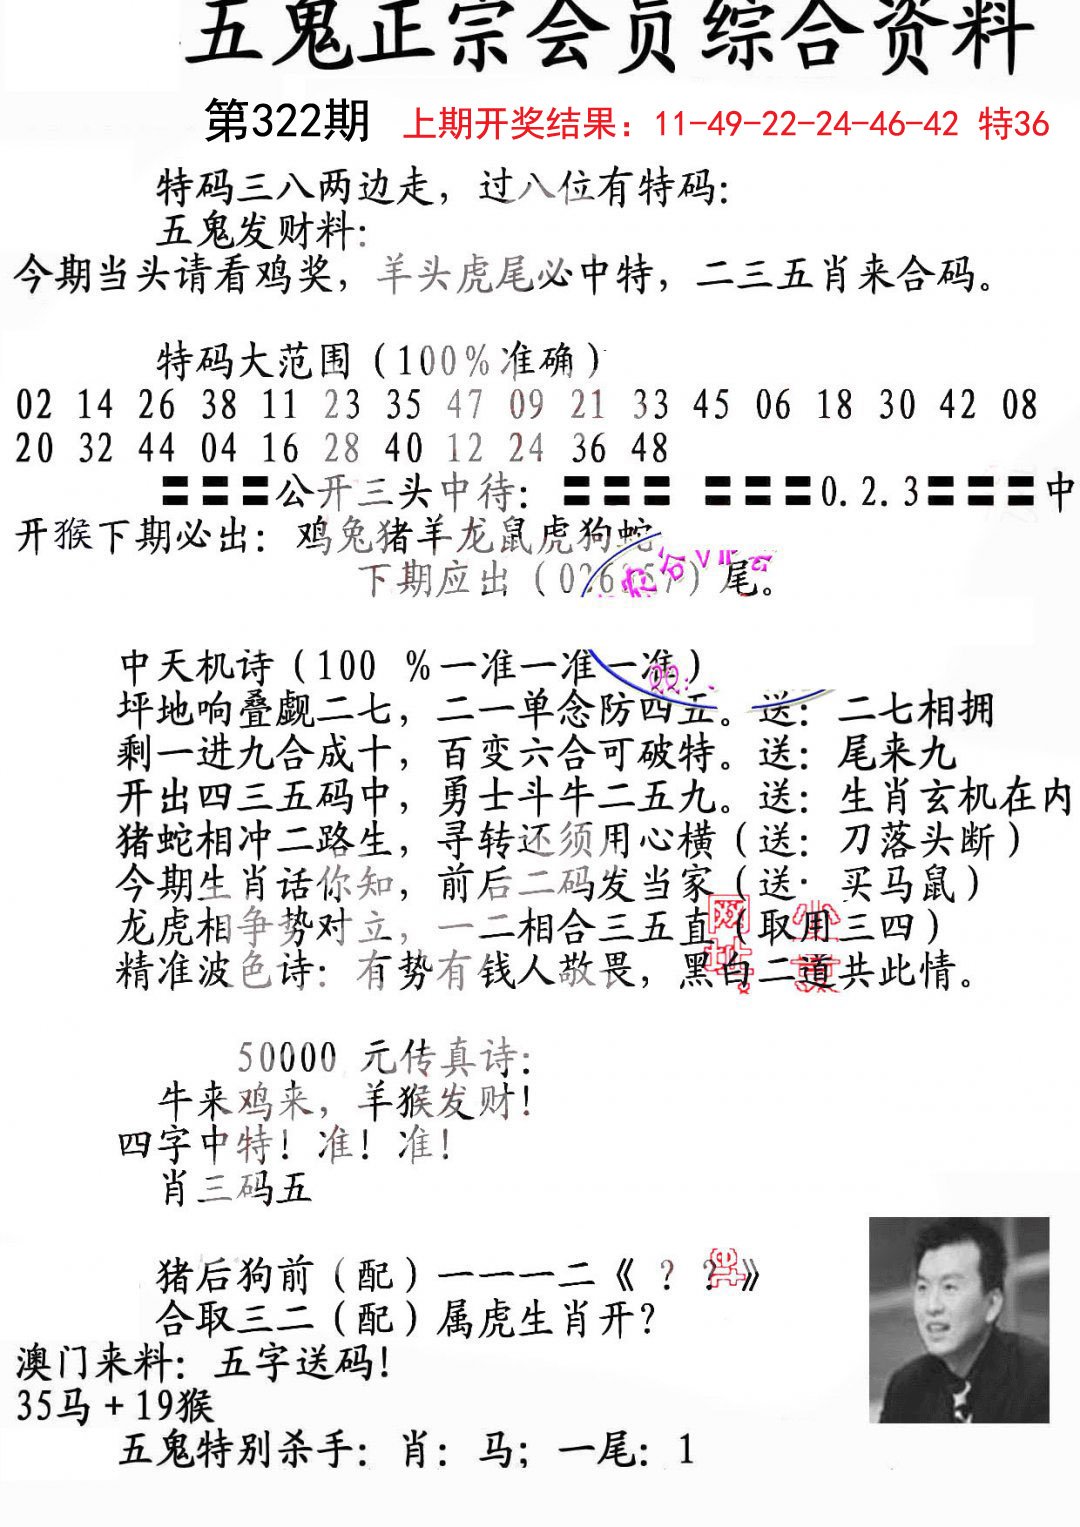 五鬼正宗会员综合资料
第322期 上期开奖结果：11-49-22-24-46-42 特36
特码三八两边走，过八位有特码：
五鬼发财料：
今期当头请看鸡奖，羊头虎尾必中特，二三五肖来合码。
特码大范围（100%准确）
02 14 26 38 11 23 35 47 09 21 33 45 06 18 30 42 08
20 32 44 04 16 28 40 12 24 36 48
〓〓〓公开三头中待：〓〓〓 〓〓〓0.2.3〓〓〓中
开猴下期必出：鸡兔猪羊龙鼠虎狗蛇
下期应出（026 57）尾。
中天机诗（100 %一准一准一准）
坪地响叠觑二七，二一单念防四五。送：二七相拥
剩一进九合成十，百变六合可破特。送：尾来九
开出四三五码中，勇士斗牛二五九。送：生肖玄机在内
猪蛇相冲二路生，寻转还须用心横（送：刀落头断）
今期生肖话你知，前后二码发当家（送：买马鼠）
龙虎相争势对立，一二相合三五直（取用三四）
精准波色诗：有势有钱人敬畏，黑白二道共此情。
50000 元传真诗：
牛来鸡来，羊猴发财！
四字中特！准！准！
肖三码五
猪后狗前（配）一一一二《 ？？》
合取三二（配）属虎生肖开？
澳门来料：五字送码！
35马+19猴
五鬼特别杀手：肖：马；一尾：1